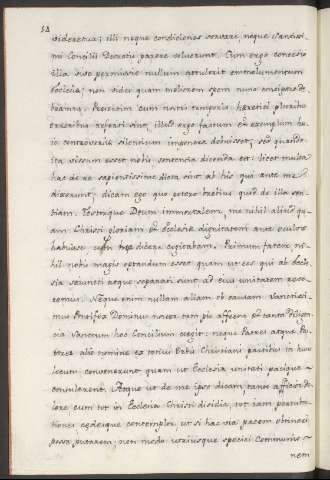 52
videretur; illi neque condiciones servare, neque Sanctissi-
mi Concilii Decretis parere voluerunt. Cum ergo concessio
illa sive permissio nullum attulerit emolumentum
Ecclesiae; non video quam meliorem spem nunc concipere de-
beamus. Praesertim cum nostri temporis haeretici
illud ergo factum et exemplum hu-
ic controversiae silentium imponere debuisset; sed quando
ita visum est nobis sententia dicenda est: licet multa
hac de re sapientissime dicta sint ab his qui ante me
dixerunt; dicam ego quo potero brevius quid de illa sen-
tiam. Testorque Deum immortalem, me nihil aliud qu-
am Christi gloriam et Ecclesiae dignitatem ante oculos
habuisse cum dicere cogitarem. Primum fateor, ni-
hil nobis magis optandum esset quam ut eos qui ab Eccle-
sia seiuncti atque separati sunt ad eius unitatem revo-
cemus. Neque enim nullam aliam ob causam Sanctissi-
mus Pontifex Dominus noster tam pio affectu et tanta diligen-
tia Sanctum hoc Concilium coegit: neque Patres atque
alio nomine ex totius Orbis Christiani partibus in hunc
locum convenerunt quam ut Ecclesiae unitati pacique
consulerent. Atque ut de me ipso dicam, tanto afficior do-
lore cum tot in Ecclesia Christi dissidia, tot iam
contemplor, ut si hac via pacem obtineri
posse putarem; non modo utriusque speciei Communio-
nem